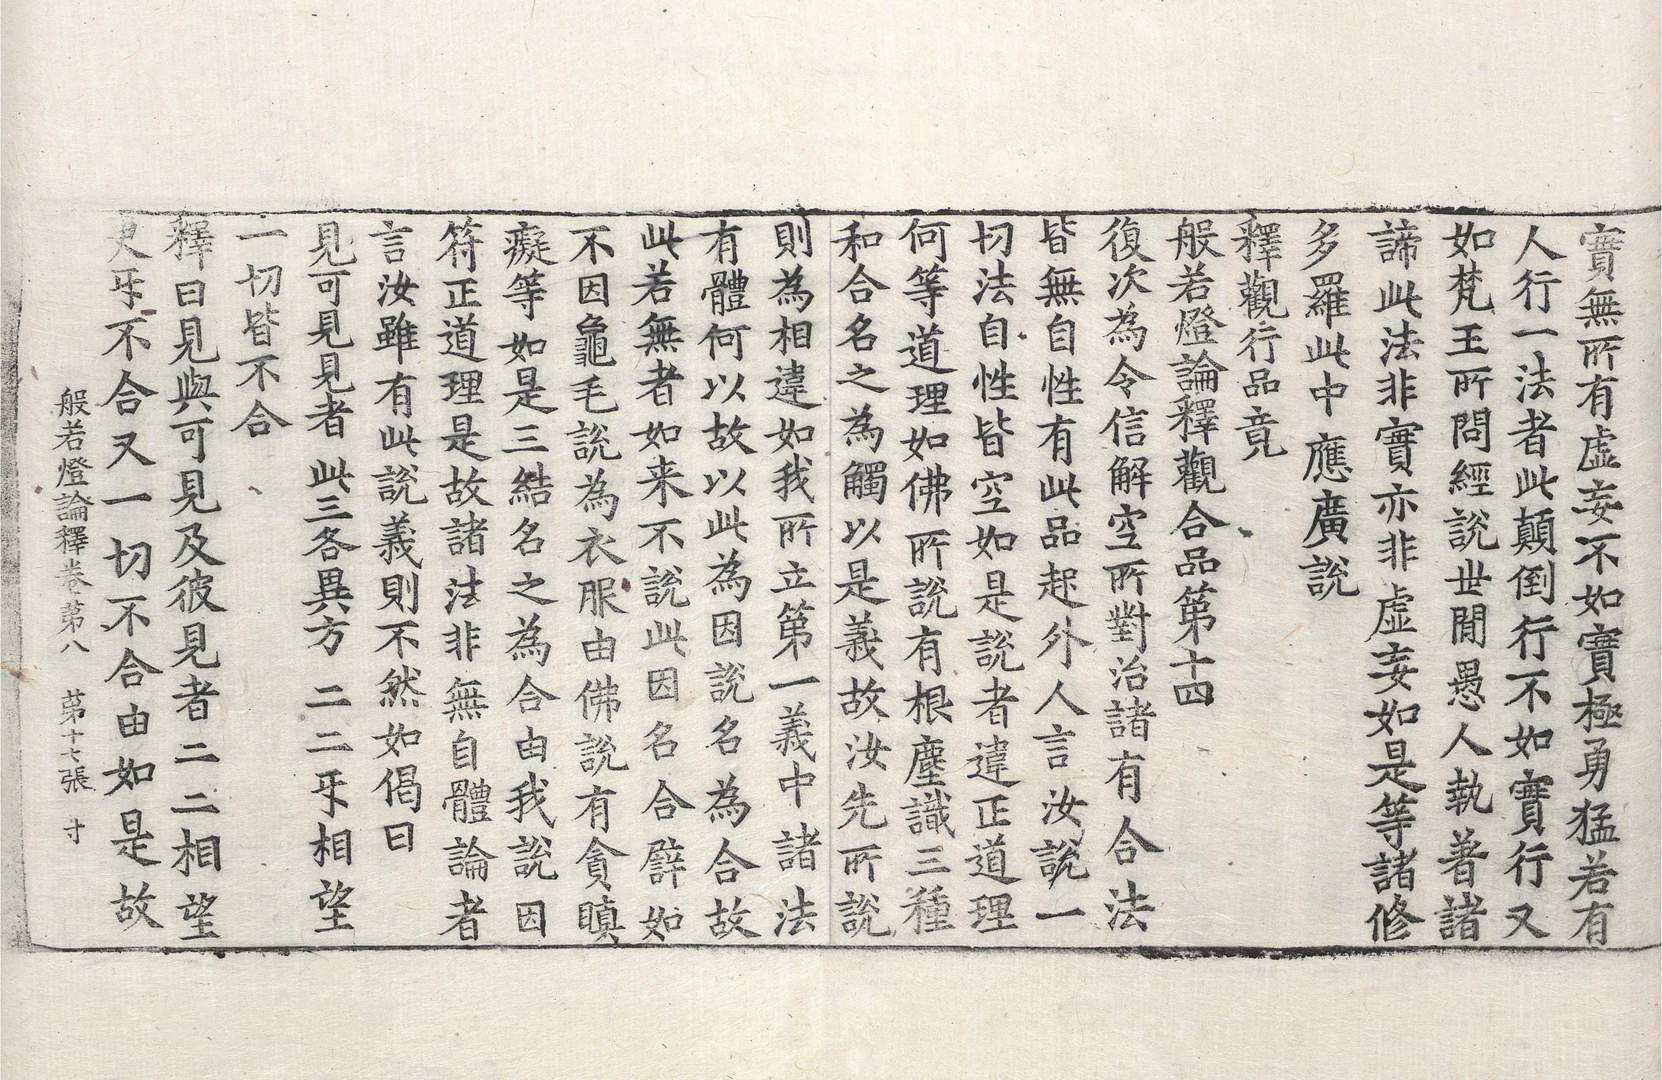 實無所有虛妄不如實極勇猛若有
人行一法者此顛倒行不如實行又
如梵王所問經說世閒愚人執著諸
諦此法非實亦非虛妄如是等諸修
多羅此中應廣說
釋觀行品竟
般若燈論釋觀合品第十四
復次為令信解空所對治諸有合法
皆無自性有此品起外人言汝說一
切法自性皆空如是說者違正道理
何等道理如佛所說有根塵識三種
和合名之為觸以是義故汝先所說
則為相違如我所立第一義中諸法
有體何以故以此為因說名為合故
此若無者如来不說此因名合譬如
不因龜毛說為衣服由佛說有貪瞋
癡等如是三結名之為合由我說因
符正道理是故諸法非無自體論者
言汝雖有此說義則不然如偈曰
見可見見者 此三各異方 二二㸦相望
一切皆不合
釋曰見與可見及彼見者二二相望
更㸦不合又一切不合由如是故
般若燈論釋卷第八 第十七張 寸